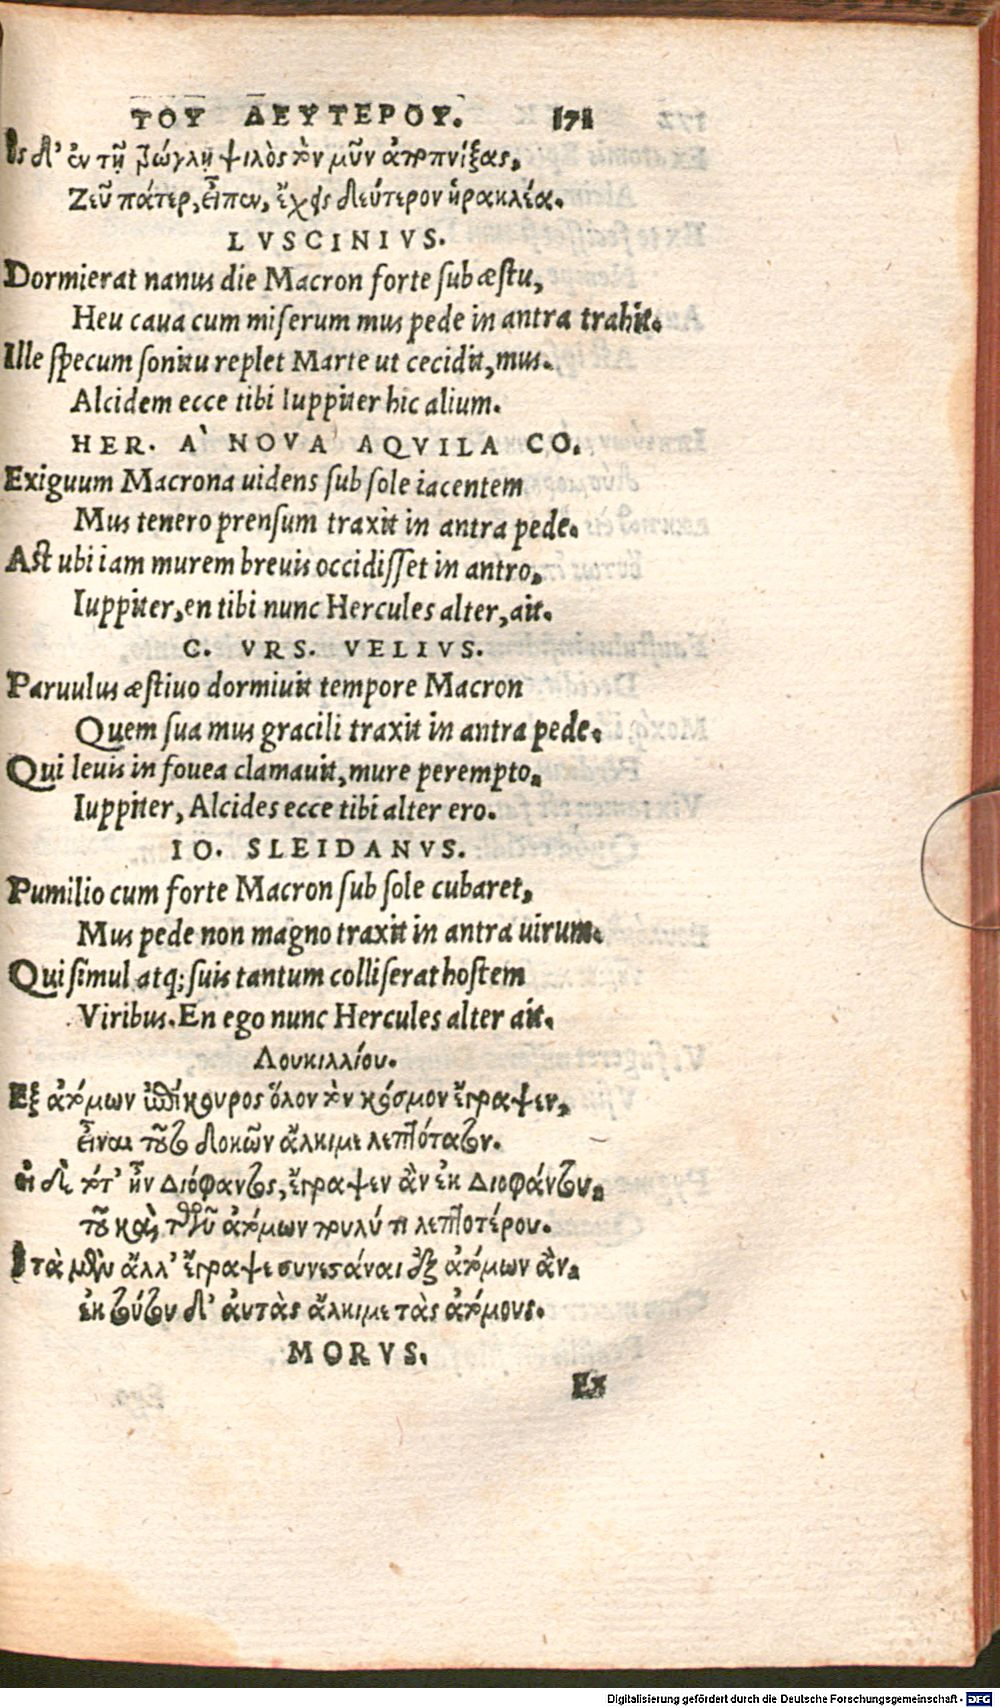 ΤΟΥ ΔΕΥΤΕΡΟΥ. 171
Ὃς δ' ἐν τῇ βώγλῃ ψιλὸς τὸν μῦν ἀποπνίξας,
Ζεῦ πάτερ, εἶπεν, ἔχεις δεύτερον ἡρακλέα.
LVSCINIVS.
Dormierat nanus die Macron forte sub æstu,
Heu caua cum miserum mus pede in antra trahit.
Ille specum sonitu replet Marte ut cecidit, mus.
Alcidem ecce tibi Iuppiter hic alium.
HER. A' NOVA AQVILA CO.
Exiguum Macrona uidens sub sole iacentem
Mus tenero prensum traxit in antra pede.
Ast ubi iam murem breuis occidisset in antro,
Iuppiter, en tibi nunc Hercules alter, ait.
C. VRS. VELIVS.
Paruulus æstiuo dormiuit tempore Macron
Quem sua mus gracili traxit in antra pede.
Qui leuis in fouea clamauit, mure perempto,
Iuppiter, Alcides ecce tibi alter ero.
IO. SLEIDANVS.
Pumilio cum forte Macron sub sole cubaret,
Mus pede non magno traxit in antra uirum.
Qui simul atq; suis tantum colliserat hostem
Viribus. En ego nunc Hercules alter ait.
Λουκιλλίου.
Εξ ἀτόμων ἐπίκουρος ὅλον τὸν κόσμον ἔγραψεν,
εἶναι τοῦτο δοκῶν ἄλκιμε λεπτότατον.
εἰ δὲ τότ' ἦν Διόφαντος, ἔγραψεν ἂν ἐκ Διοφάντου,
τοῦ καὶ τῶν ἀτόμων πουλύ τι λεπτοτέρου.
Ἢ τὰ μὲν ἄλλ' ἔγραψε συνεστάναι ἐξ ἀτόμων ἂν,
ἐκ τούτου δ' αὐτὰς ἄλκιμε τὰς ἀτόμους.
MORVS.
Ex
Digitalisierung gefördert durch die Deutsche Forschungsgemeinschaft - DFG